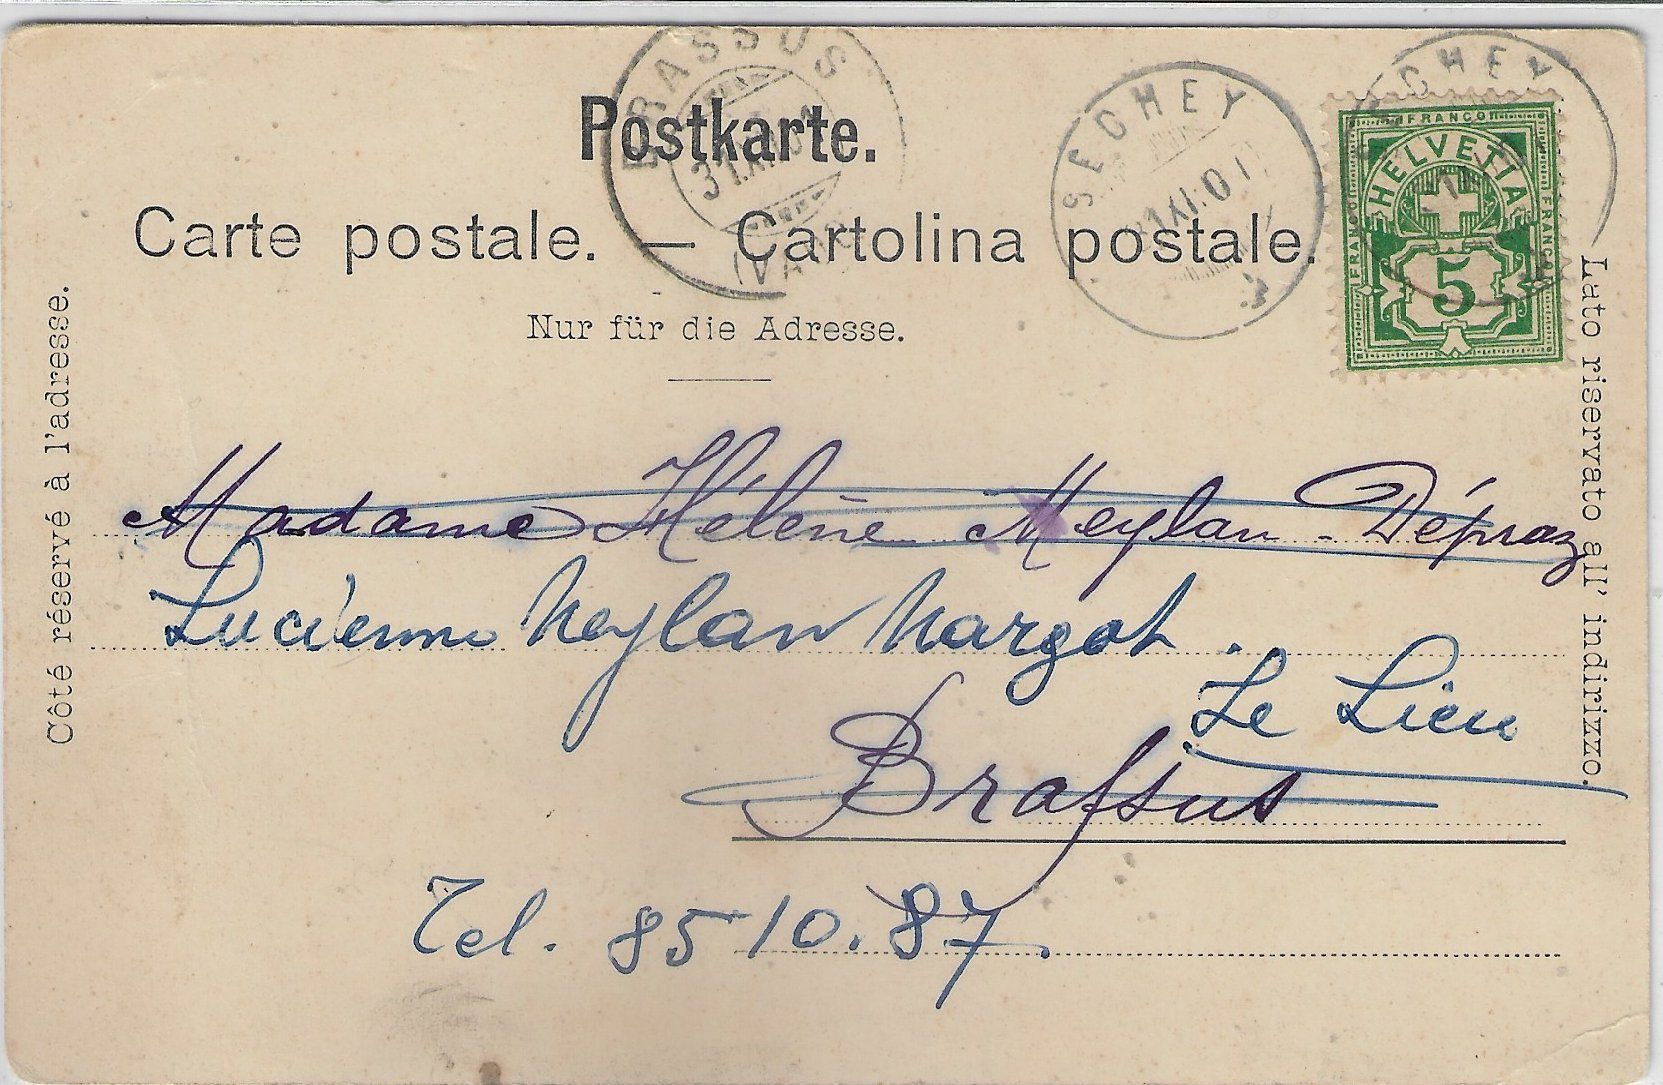 BRASSUS
31.XII.01
(VAUD)
SECHEY
31.XII.01
SECHEY
FRANCO
HELVETIA
FRANCO
FRANCO
5
Postkarte.
Carte postale. — Cartolina postale.
Nur für die Adresse.
Côté réservé à l'adresse.
Lato riservato all' indirizzo.
Madame Hélène Meylan-Dépraz
Lucienne Meylan Margot.
Le Lieu
Brassus
Tel. 85 10.87.